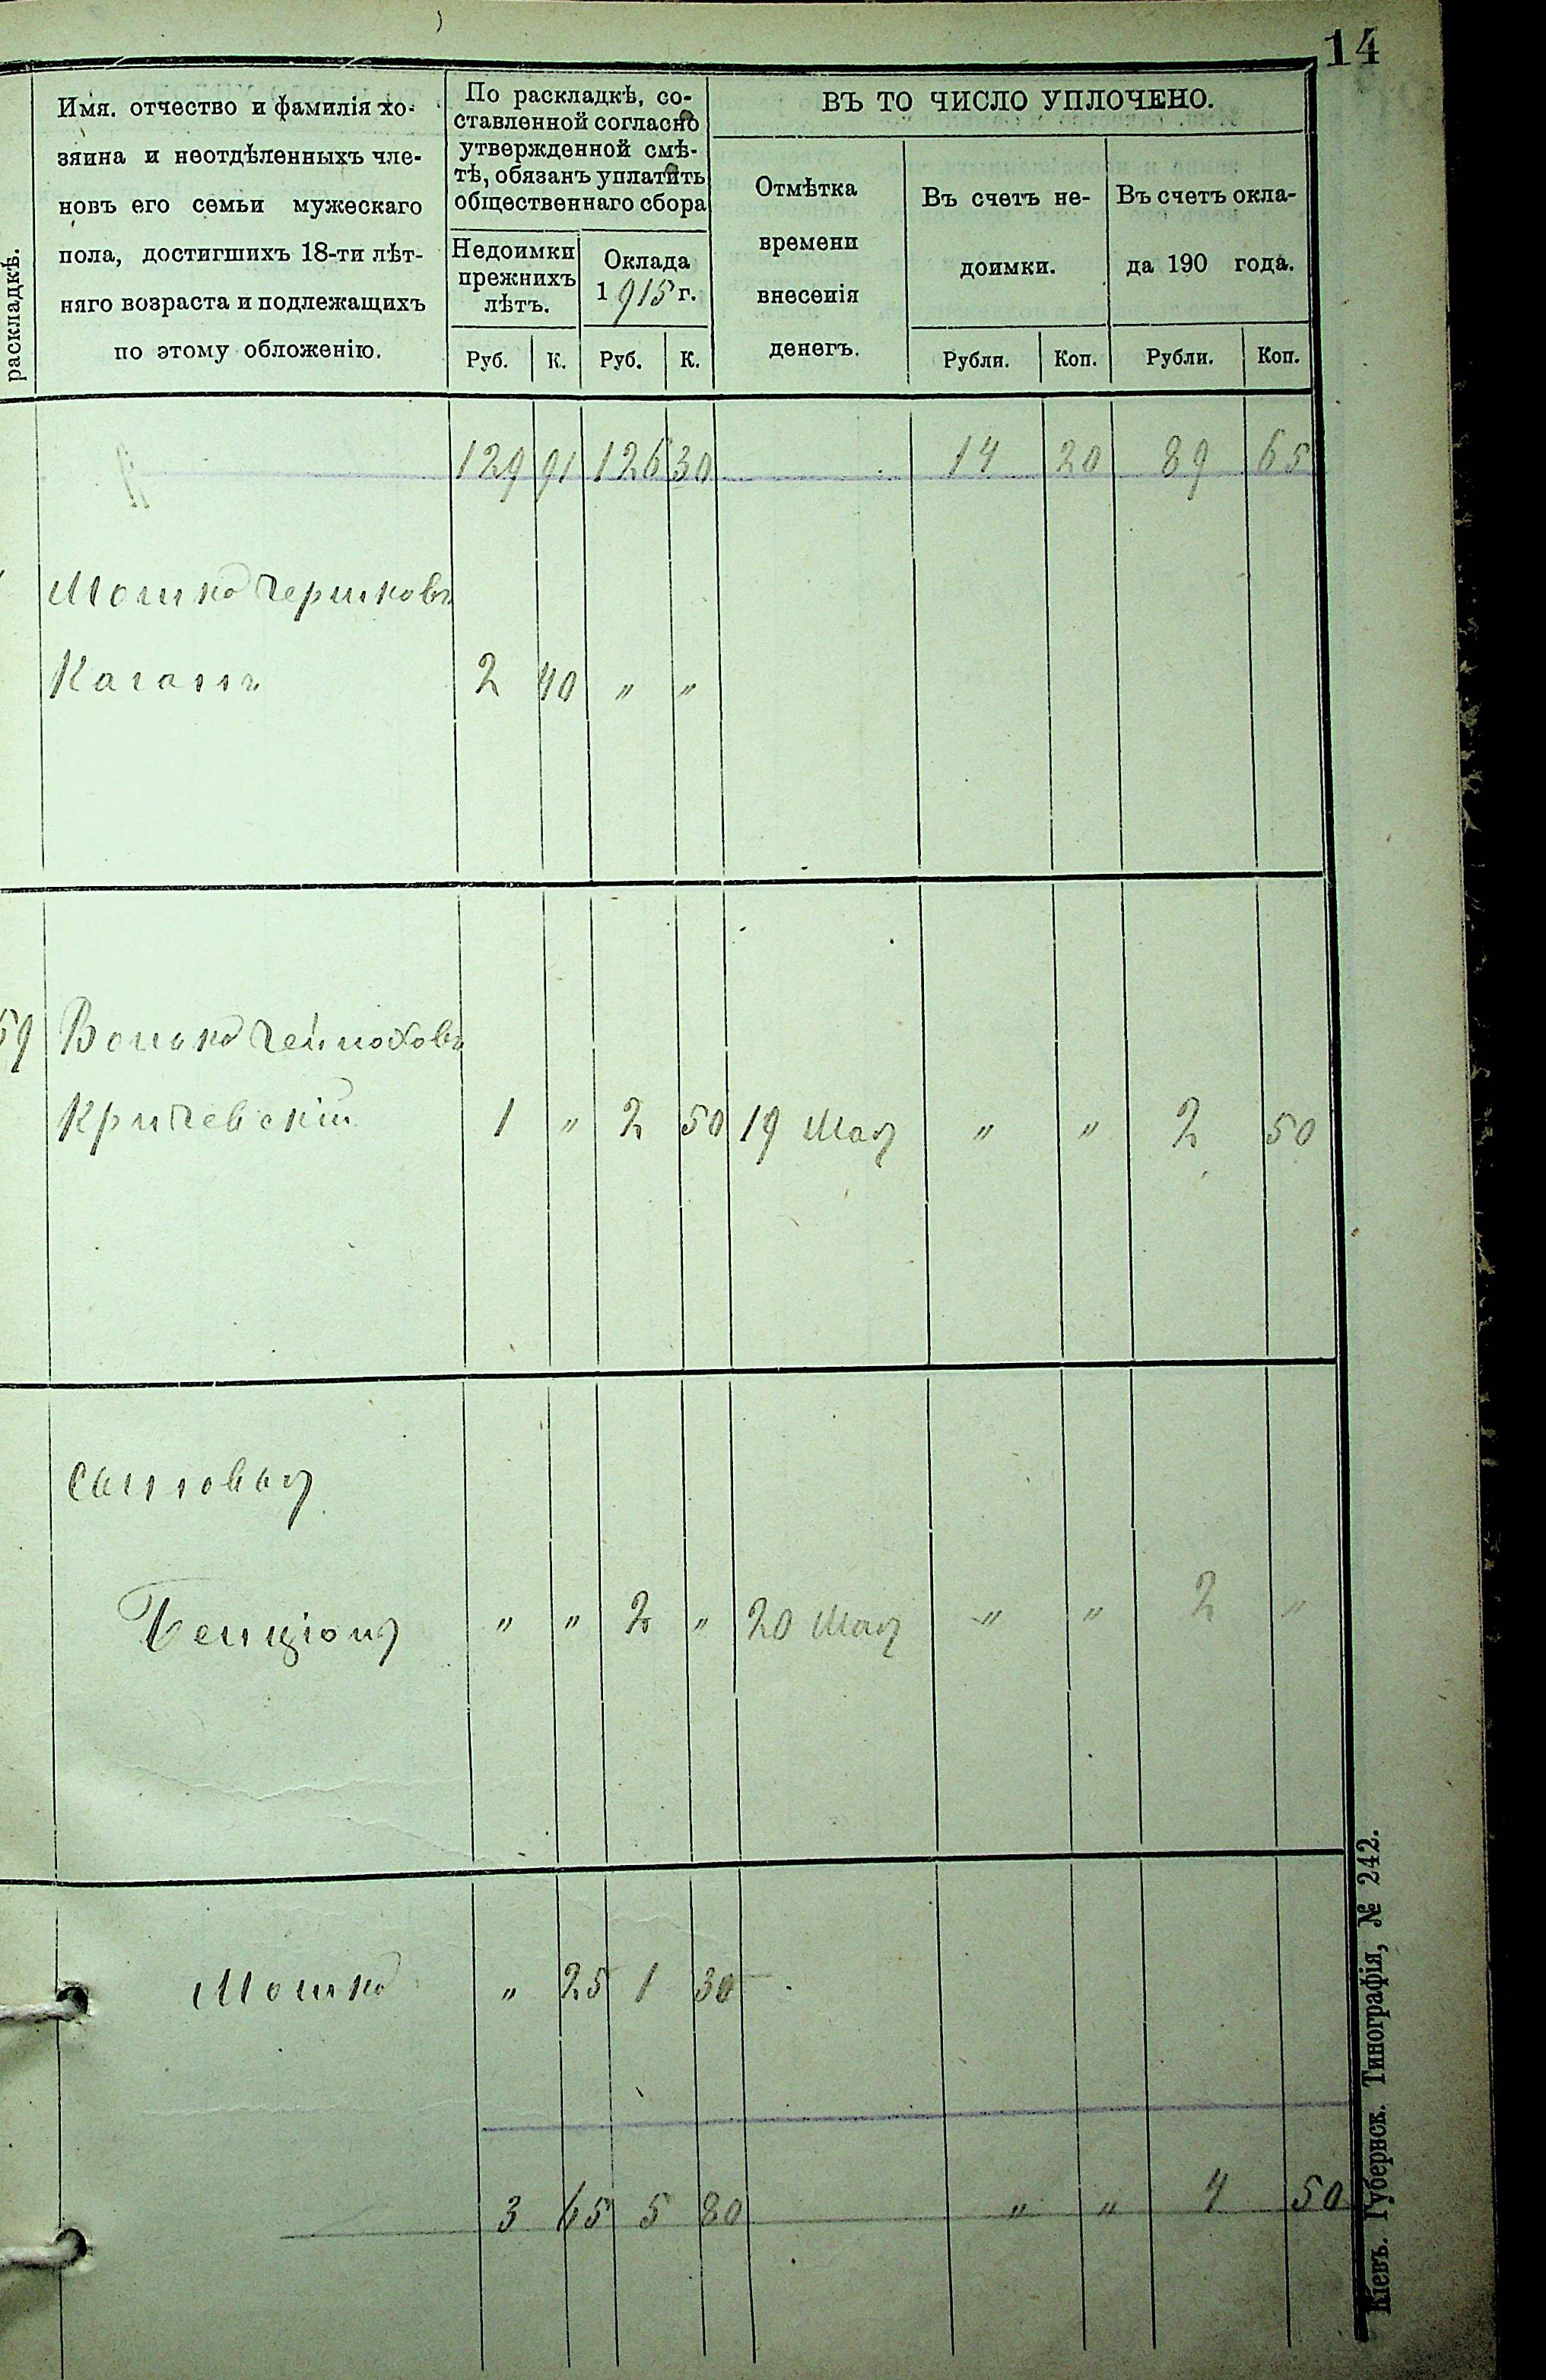 14
раскладкѣ.
Имя. отчество и фамилія хо-
зяина и неотдѣленныхъ чле-
новъ его семьи мужескаго
пола, достигшихъ 18-ти лѣт-
няго возраста и подлежащихъ
по этому обложенію.
По раскладкѣ, со-
ставленной согласно
утвержденной смѣ-
тѣ, обязанъ уплатить
общественнаго сбора
Недоимки
прежнихъ
лѣтъ.
Руб. К.
Оклада
1915 г.
Руб. К.
ВЪ ТО ЧИСЛО УПЛОЧЕНО.
Отмѣтка
времени
внесенія
денегъ.
Въ счетъ не-
доимки.
Рубли. Коп.
Въ счетъ окла-
да 190 года.
Рубли. Коп.
129 91 126 30 14 20 89 65
Мошко Гершковъ
Каганъ 2 40 " "
59 Волько
Кричевскій 1 " 2 50 19 Мая " " 2 50
Сыновья
Бенціонъ " " 2 " 20 Мая " " 2 "
Мошко " 25 1 30
3 65 5 80 " " 4 50
Кіевъ. Губернск. Типографія, № 242.